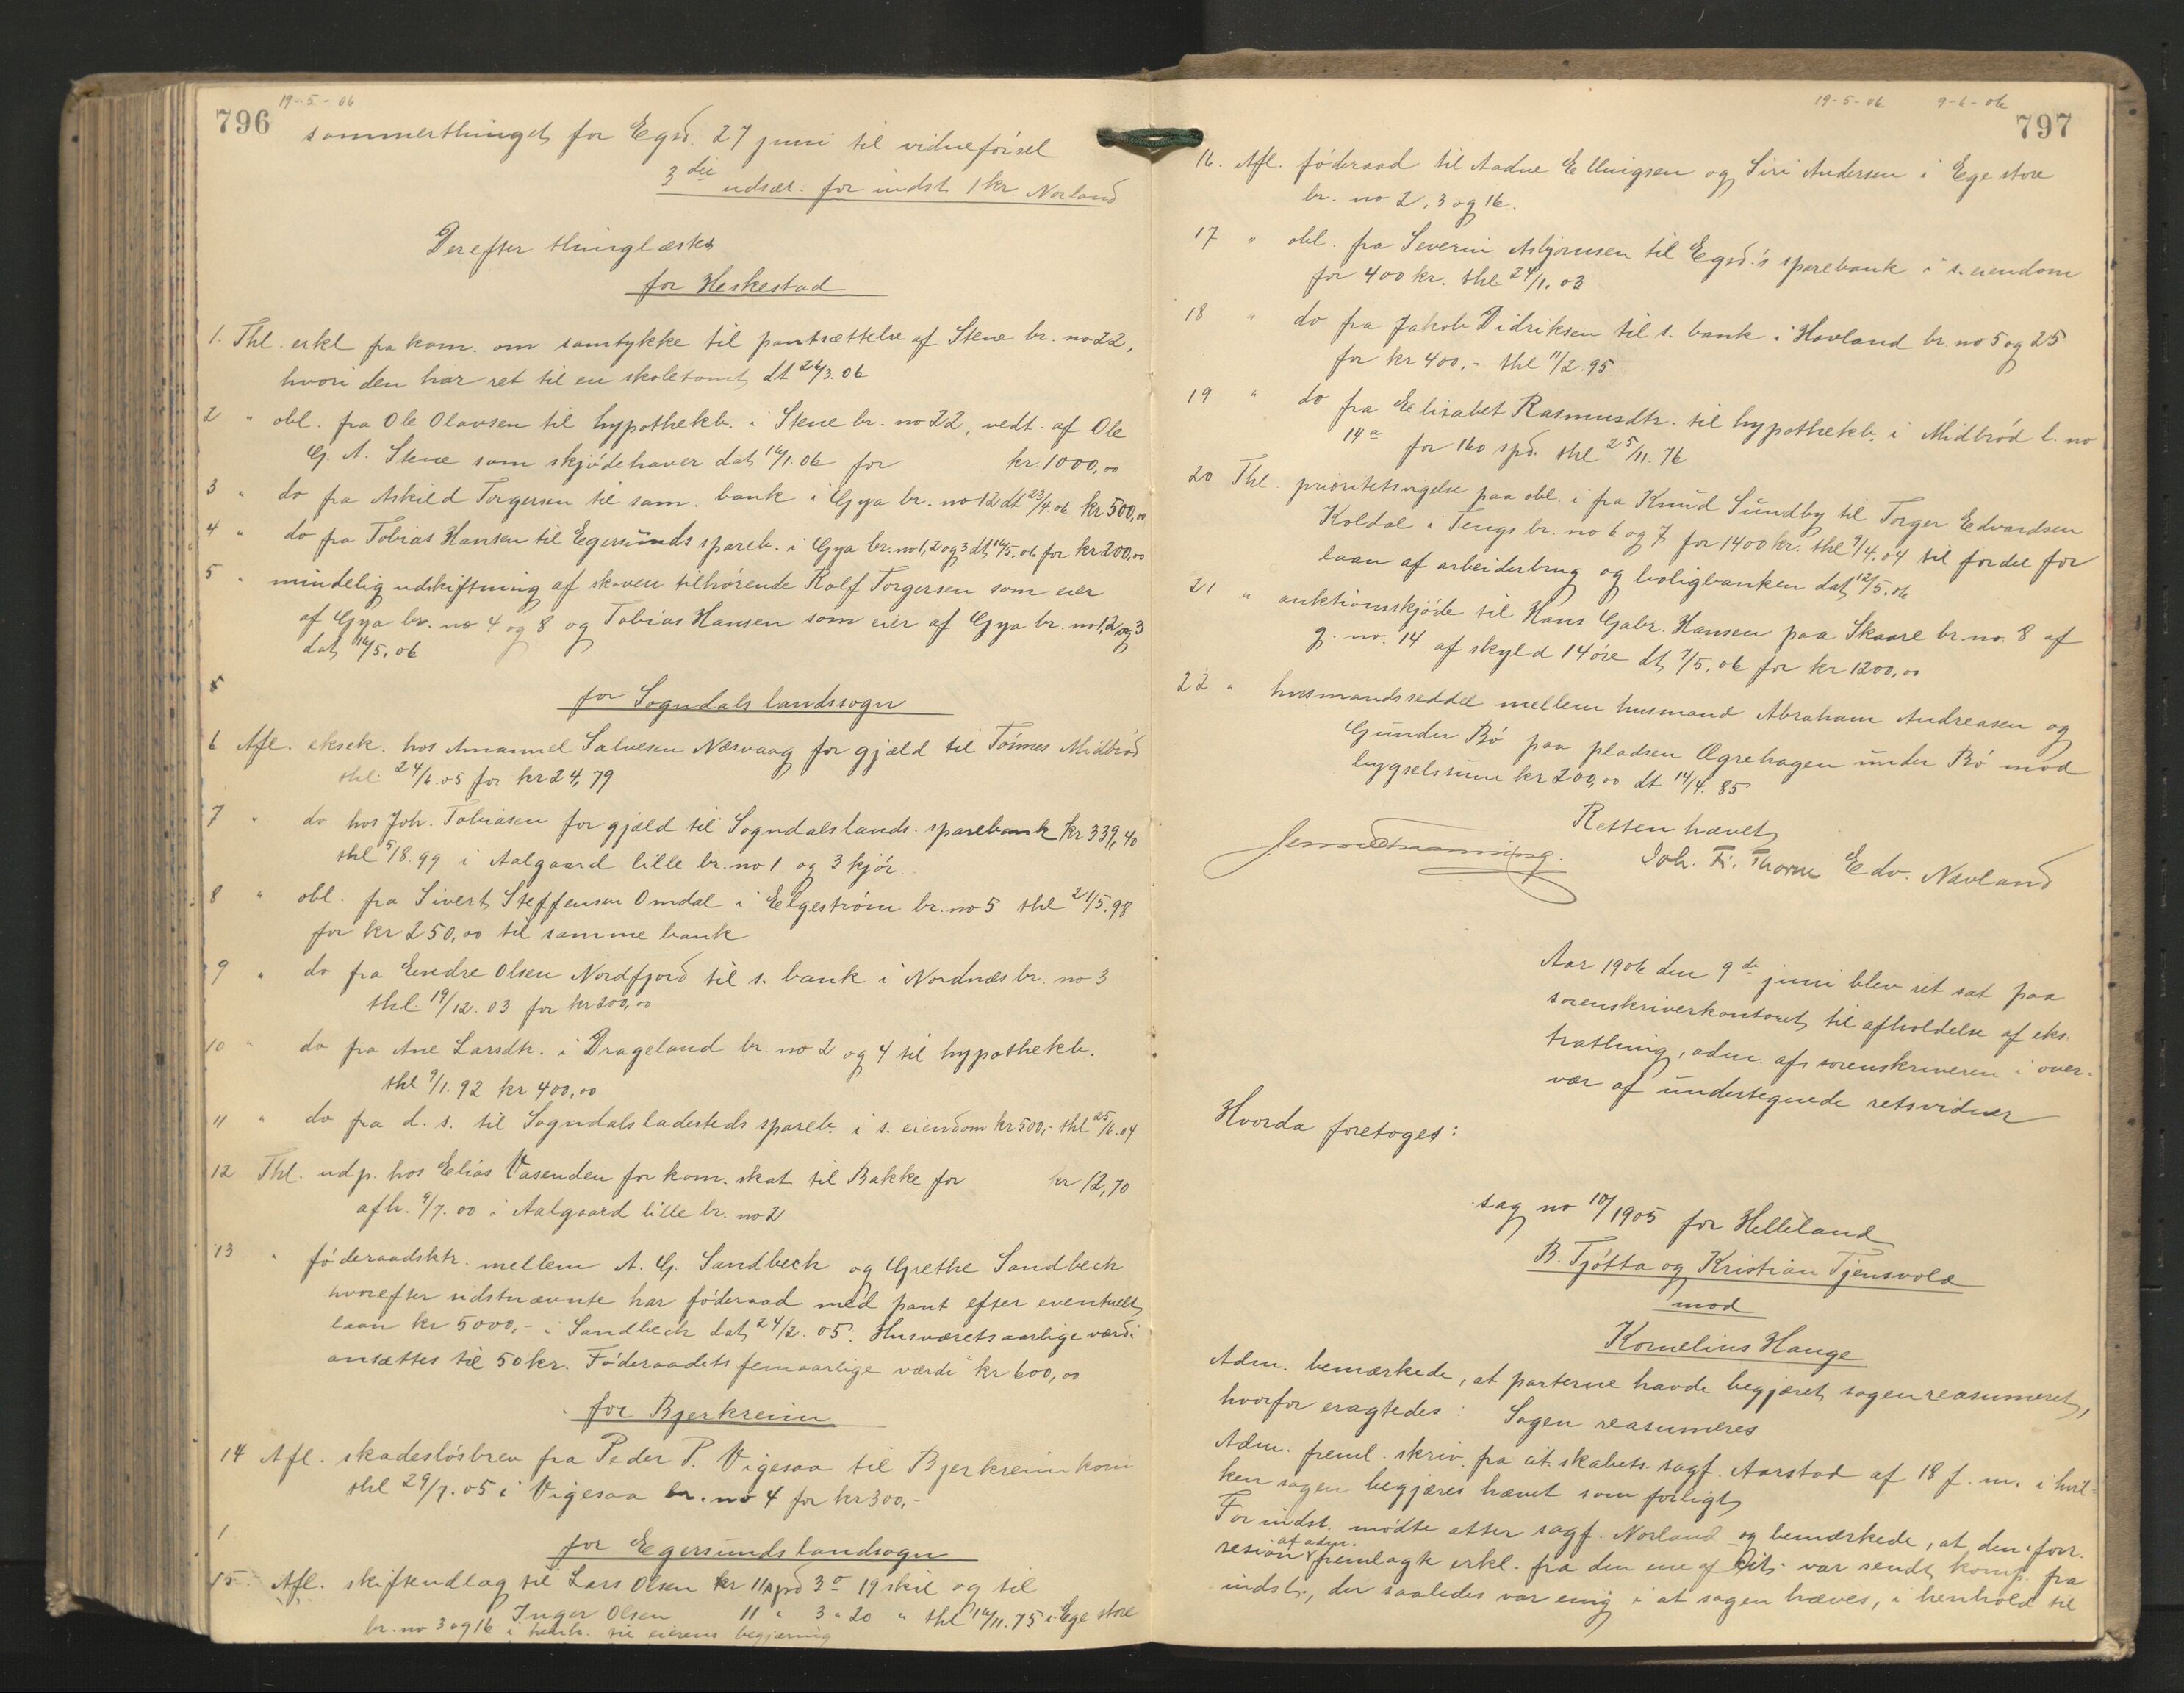 796
19-5-06
sommerthinget for Egsd. 27 juni til vidneførsel
3die udsæt. for indst 1 kr. Norland
Derefter thinglæstes
for Heskestad
1. Thl. erkl fra kom. om samtykke til pantsættelse af Stene br. no 22,
hvori den har ret til en skoletomt dt 26/3. 06
2 " obl. fra Ole Olavsen til hypothekb. i Stene br. no 22, vedt. af Ole
G. A. Stene som skjødehaver dat 16/1. 06 for kr. 1000,00
3 " do fra Askild Torgersen til sam. bank i Gya br. no 12 dt 23/4. 06 kr 500,00
4 " do fra Tobias Hansen til Egersunds spareb. i Gya br. no 1, 2 og 3 dt 16/5. 06 for kr 200,00
5 " mindelig udskiftning af skoven tilhørende Rolf Torgersen som eier
af Gya br. no 4 og 8 og Tobias Hansen som eier af Gya br. no 1, 2 og 3
dat 16/5. 06
5
for Sogndals landssogn
6 Afl. eksek. hos Amanuel Salvesen Næsvaag for gjæld til Tønnes Midbrød
thl. 24/6. 05 for kr 24,79
7 " do hos Joh. Tobiasen for gjæld til Sogndalslands. sparebank kr 339,40
thl 5/8. 99 i Aalgaard lille br. no 1 og 3 kjør.
8 " obl. fra Sivert Steffensen Omdal i Elgestrøm br. no 5 thl 21/5. 98
for kr 250,00 til samme bank
9 " do fra Endre Olsen Nordfjord til s. bank i Nordnæs br. no 3
thl. 19/12. 03 for kr 200,00
10 " do fra Ane Larsdtr. i Drageland br. no 2 og 4 til hypothekb.
thl 9/1. 92 kr 400,00
11 " do fra d. s. til Sogndalsladesteds spareb. i s. eiendom kr 500,- thl 25/6. 04
12 Thl. udp. hos Elias Vasenden for kom. skat til Bakke for kr 12,70
afh. 9/7. 00 i Aalgaard lille br. no 2
13 " føderaadsktr. mellem A. G. Sandbeck og Grethe Sandbeck
hvorefter sidstnævnte har føderaad med pant efter eventuelt
laan kr 5000,- i Sandbeck dat 24/2. 05. Husværets aarlige værdi
ansættes til 50 kr. Føderaadets femaarlige værdi kr 600,00
for Bjerkreim
14 Afl. skadesløsbrev fra Peder P. Vigesaa til Bjerkreim kom
thl 29/7. 05 i Vigesaa br. no 4 for kr 300,-
1
for Egersunds landsogn
15. Afl. skifteudlæg til Lars Olsen kr 11 spd 3 o 19 skil og til
Inger Olsen 11 " 3 " 20 " thl 16/11. 75 i Ege store
br. no 3 og 16 i henh. til eierens begjæring
19-5-06 9-6-06
797
16. Afl. føderaad til Aadne Ellingsen og Siri Andersen i Ege store
br. no 2, 3 og 16.
17 " obl. fra Severin Asbjørnsen til Egsd.'s sparebank i s. eiendom
for 400 kr. thl 24/1. 03
18 " do fra Jakob Didriksen til s. bank i Hovland br. no 5 og 25
for kr 400,- thl 11/2. 95
19 " do fra Elisabet Rasmusdtr. til hypothekb. i Midbrød l. no
14a for 160 spd. thl 25/11. 76
20 Thl. prioritetsvigelse paa obl. i fra Knud Sundby til Torger Edvardsen
Koldal i Tengs br. no 6 og 7 for 1400 kr. thl 9/4. 04 til fordel for
laan af arbeiderbrug og boligbanken dat 12/5. 06
21 " auktionsskjøde til Hans Gabr. Hansen paa Skaare br. no. 8 af
g. no. 14 af skyld 14 øre dt 7/5. 06 for kr 1200,00
22 " husmandsseddel mellem husmand Abraham Andreasen og
Gunder Bø paa pladsen Øgrehagen under Bø mod
bygselssum kr 200,00 dt 14/4. 85
Retten hævet
Joh. Fr. Thorne Edv. Navland
Aar 1906 den 9de juni blev ret sat paa
sorenskriverkontoret til afholdelse af eks-
trathing, adm. af sorenskriveren i over-
vær af undertegnede retsvidner
Hvorda foretoges:
sag no 10/1905 for Helleland
B. Tjøtta og Kristian Tjensvold
mod
Kornelius Hauge
Adm. bemærkede, at parterne havde begjæret sagen reasumeret,
hvorfor eragtedes: Sagen reasumeres
Adm. freml. skriv. fra cit.skabets sagf. Aarstad af 18 f. m. i hvil-
ken sagen begjæres hævet som forligt
For indst. mødte atter sagf. Norland og bemærkede, at den i forr.
af adm.
resion fremlagte erkl. fra den ene af cit. var sendt komp. fra
indst., der saaledes var enig i at sagen hæves, i henhold til